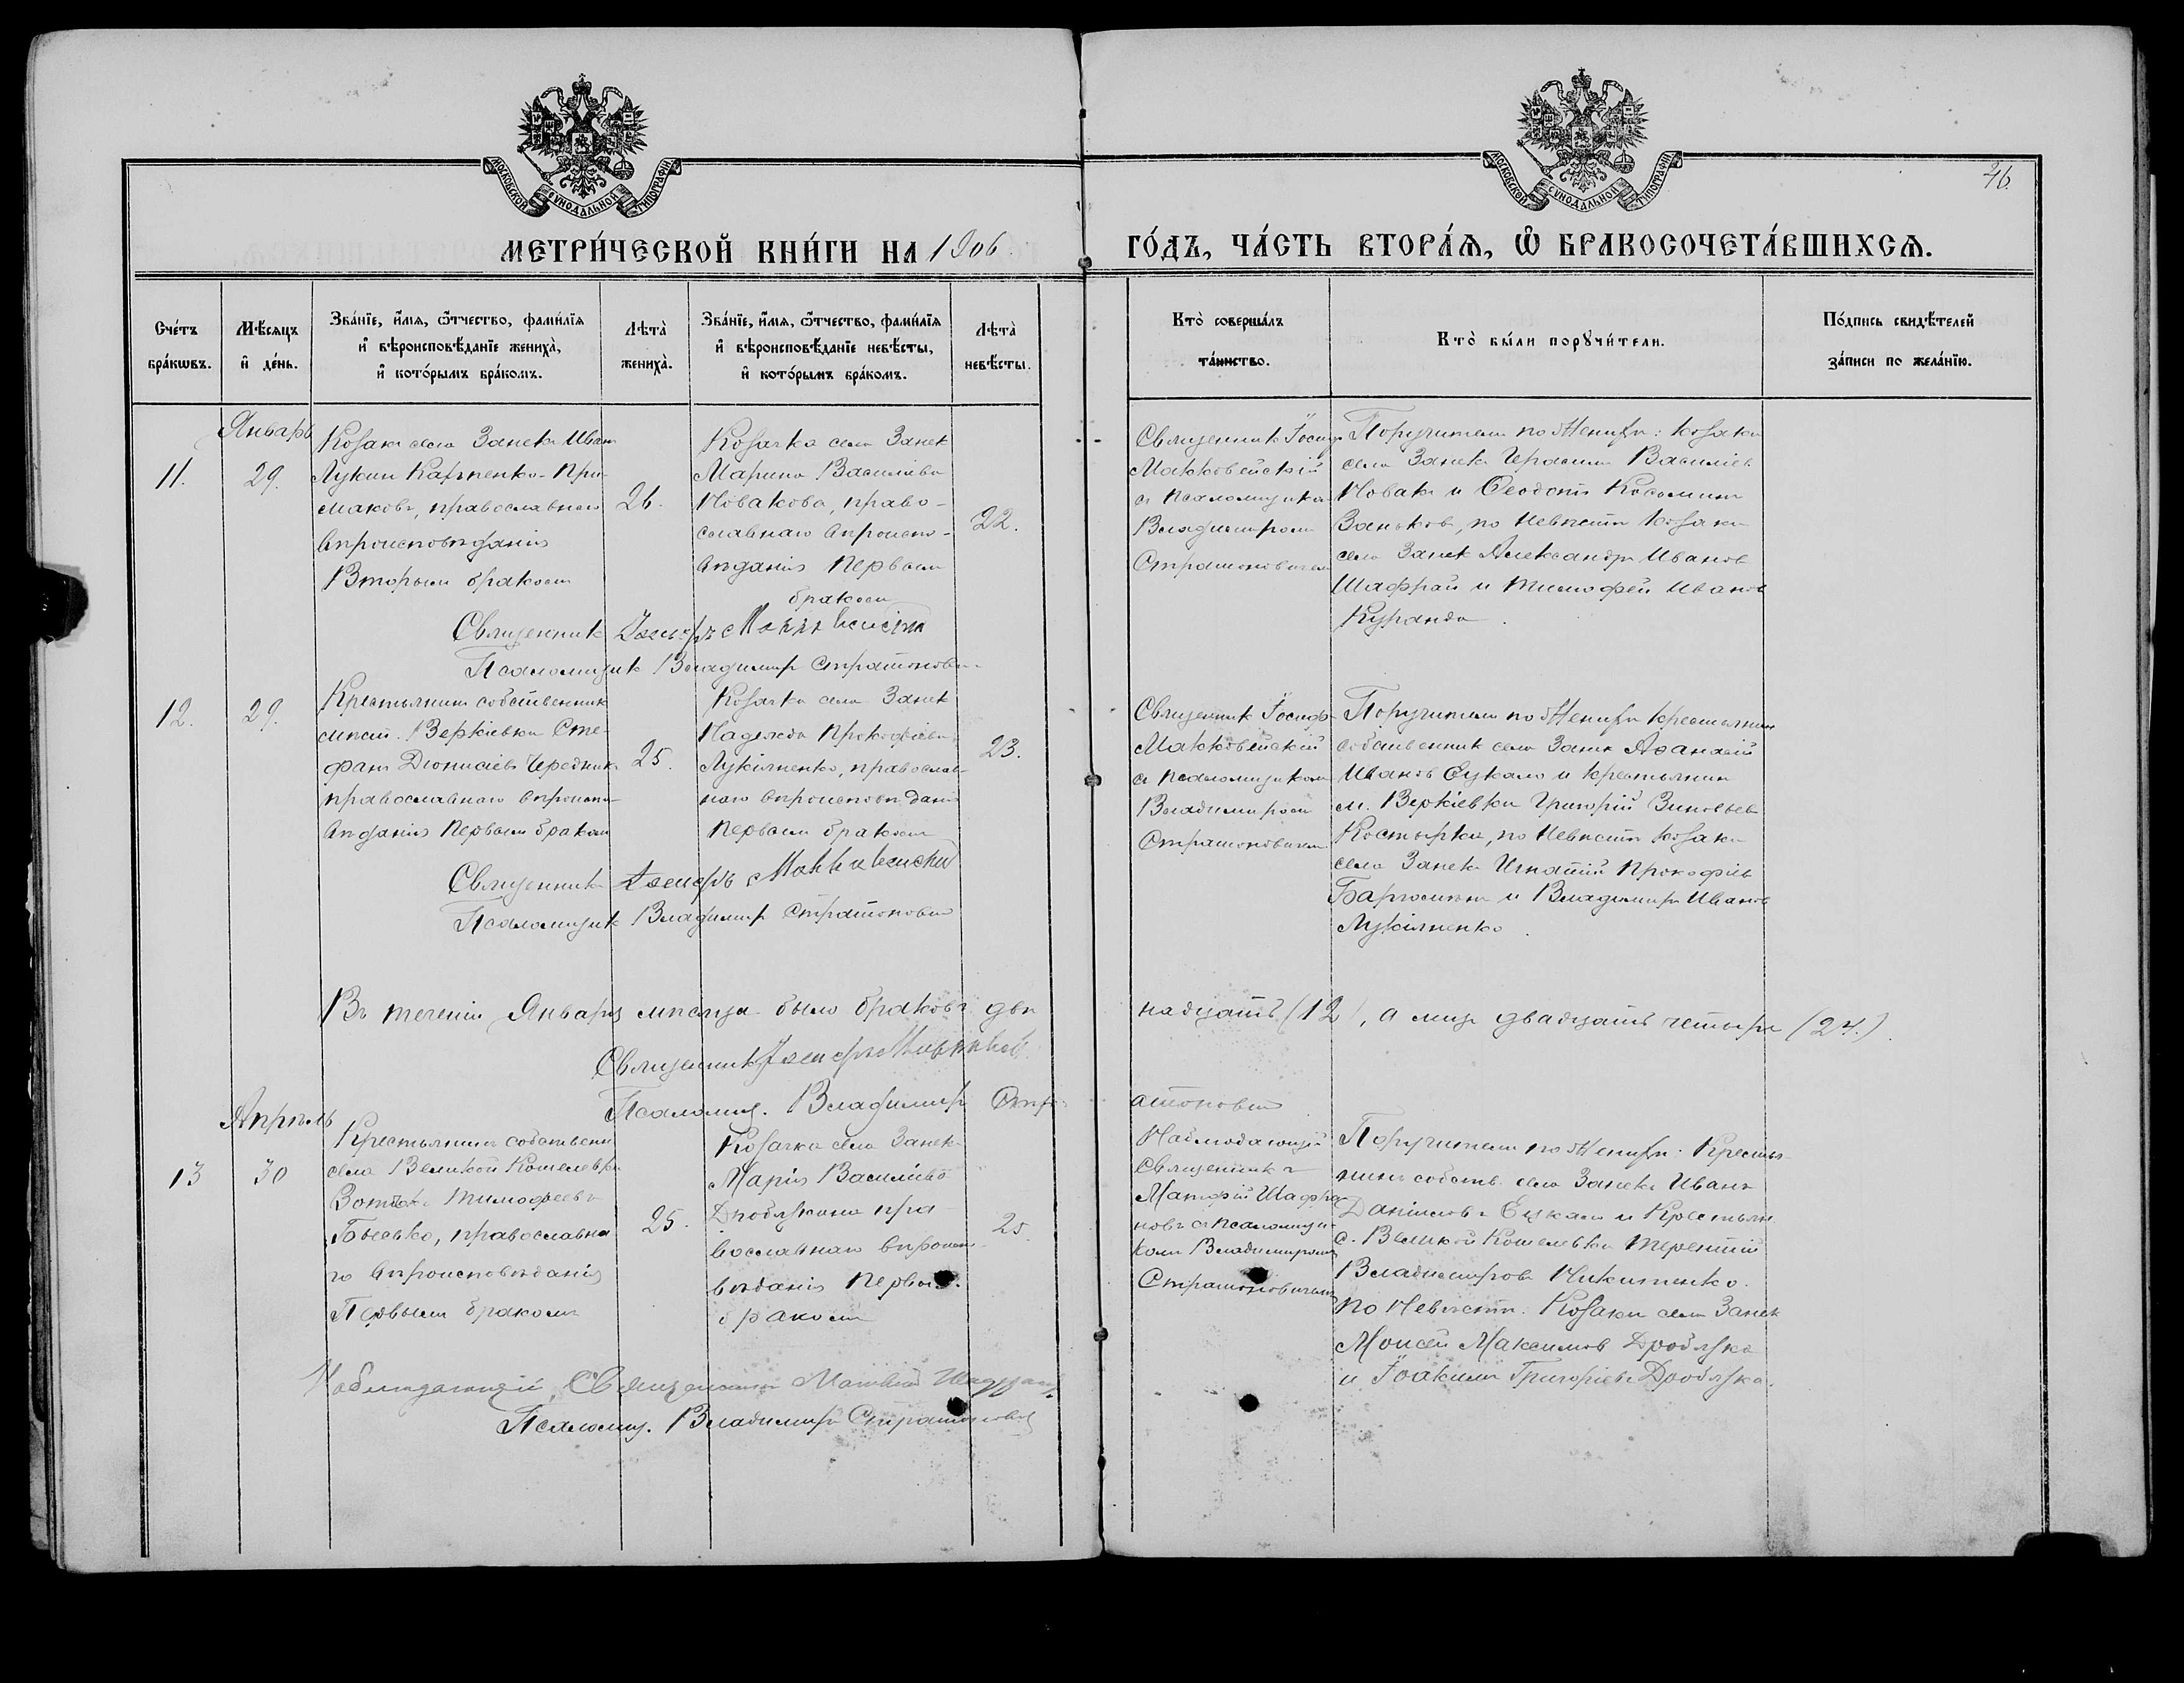 МОСКОВСКОЙ СУНОДАЛЬНОЙ ТИПОГРАФІИ
МОСКОВСКОЙ СУНОДАЛЬНОЙ ТИПОГРАФІИ
46.
МЕТРИ́ЧЕСКОЙ КНИ́ГИ НА 1906
ГО́ДЪ, ЧА́СТЬ ВТОРА́Ѧ, Ѽ БРАКОСОЧЕТА́ВШИХСѦ.
Сче́тъ бра́кωвъ.
Мѣ́сяцъ и҆ де́нь.
Зва́нїе, и҆́мѧ, ѻ҆́тчество, фами́лїѧ и҆ вѣроисповѣ́данїе жениха̀, и҆ кото́рымъ бра́комъ.
Лѣта̀ жениха̀.
Зва́нїе, и҆́мѧ, ѻ҆́тчество, фами́лїѧ и҆ вѣроисповѣ́данїе невѣ́сты, и҆ кото́рымъ бра́комъ.
Лѣта̀ невѣ́сты.
Кто̀ соверша́лъ та́инство.
Кто̀ бы́ли порꙋчи́тели.
По́дпись свидѣ́телей за́писи по жела́нїю.
Январь
11.
29.
Козакъ села Занекъ Иванъ
Лукинъ Карпенко-При-
маковъ, православнаго
вѣроисповѣданія
Вторымъ бракомъ
26.
Козачка села Занекъ
Марина Василіева
Новакова, право-
славнаго вѣроиспо-
вѣданія Первымъ
бракомъ
22.
Священникъ Іосифъ
Маккавейскій
съ псаломщикомъ
Владимиромъ
Стратоновичемъ
Поручители по Женихѣ: козаки
села Занекъ Герасимъ Василіевъ
Новакъ и Ѳеодотъ Косьминъ
Заньковъ, по Невѣстѣ козаки
села Занекъ Александръ Ивановъ
Шафрай и Тимофей Ивановъ
Куранда.
Священникъ Іосифъ Маккавейскій
Псаломщикъ Владимиръ Стратоновичъ
12.
29.
Крестьянинъ собственникъ
мѣст. Веркіевки Сте-
фанъ Діонисіевъ Чередникъ
православнаго вѣроиспо-
вѣданія Первымъ бракомъ
25.
Козачка села Занекъ
Надежда Прокофіева
Лукіяненко, православ-
наго вѣроисповѣданія
Первымъ бракомъ
23.
Священникъ Іосифъ
Маккавейскій
съ псаломщикомъ
Владимиромъ
Стратоновичемъ
Поручители по Женихѣ крестьянинъ
собственникъ села Занекъ Аѳанасій
Ивановъ Ецкало и крестьянинъ
м. Веркіевки Григорій Зиновьевъ
Костырка, по Невѣстѣ козаки
села Занекъ Игнатій Прокофіевъ
и Владимиръ Ивановъ
Лукіяненко.
Священникъ Іосифъ Маккавейскій
Псаломщикъ Владимиръ Стратоновичъ
Въ теченіи Января мѣсяца было браковъ двѣ
надцать (12), а лицъ двадцать четыре (24.).
Священникъ Іосифъ Маккавей
Псаломщ. Владимиръ Стра-
атоновичъ
Апрѣль
13
30
Крестьянинъ собственн
села Великой Кошелевки
Тимофеевъ
православна
го вѣроисповѣданія
Первымъ бракомъ
25.
Козачка села Занекъ
Марія Василіева
Дробязкина пра-
вославнаго вѣроис-
вѣданія Первымъ.
бракомъ
25.
Наблюдающій
Священникъ
Матфій Шафра
новъ съ псаломщи-
комъ Владимиромъ
Стратоновичемъ
Поручители по Женихѣ: Кресть-
нинъ собств. села Занекъ Иванъ
Даніиловъ Ецкало и Крестьян
с. Великой Кошелевки Терентій
Владимировъ Никитенко.
По Невѣстѣ. Козаки села Занекъ
Моисей Максимовъ Дробязка
и Іоакимъ Григоріевъ Дробязка.
Наблюдающій, Священникъ Матвій Шафран
Псаломщ. Владимиръ Стратоновичъ